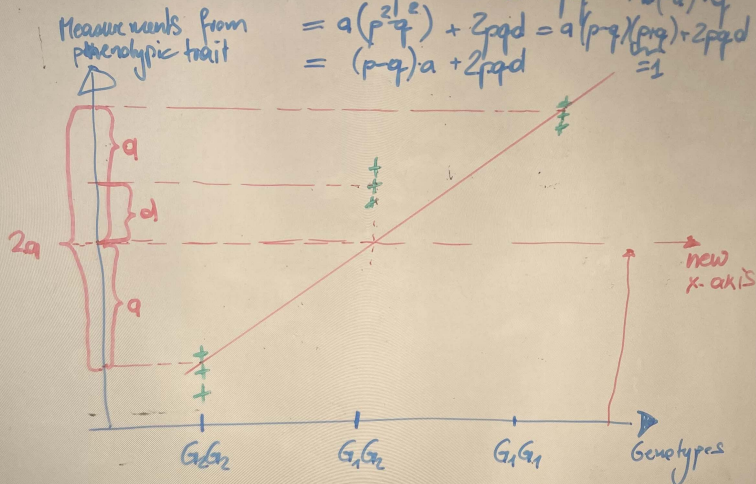 Measurements from
phenotypic trait
= a(p²-q²) + 2pqd = a(p-q)(p+q) + 2pqd
= (p-q)·a + 2pqd
=1
a
d
2a
a
new
x-akis
G₂G₂
G₁G₂
G₁G₁
Genotypes